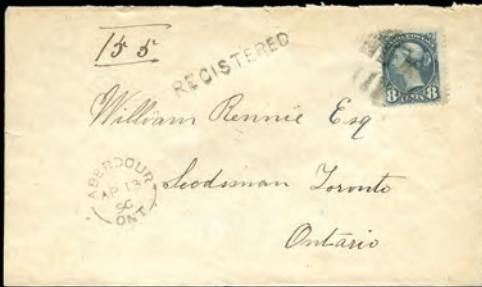 155
REGISTERED
8 CENTS 8
William Rennie Esq
ABERDOUR
AP 13
ONT
Seedsman Toronto
Ontario